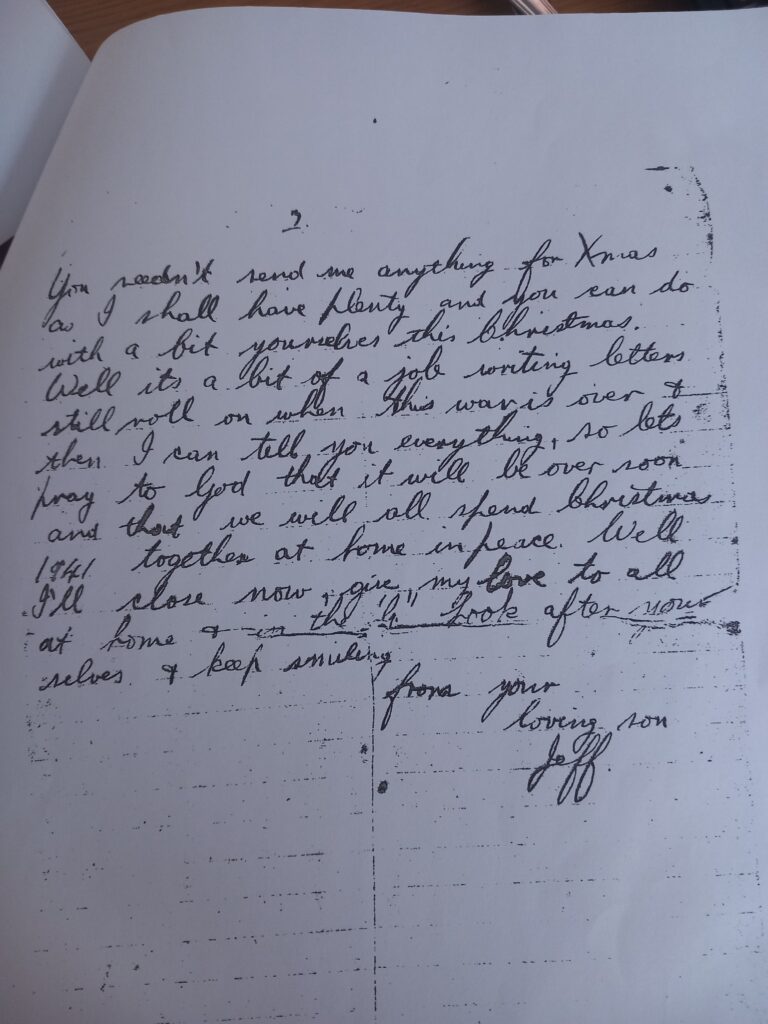 2.
You needn't send me anything for Xmas
as I shall have plenty and you can do
with a bit yourselves this Christmas.
Well its a bit of a job writing letters
still roll on when this war is over &
then I can tell you everything, so lets
pray to God that it will be over soon
and that we will all spend Christmas
1941 together at home in peace. Well
I'll close now, give my love to all
at home & in the "G" Look after your
selves & keep smiling
from your
loving son
Jeff.